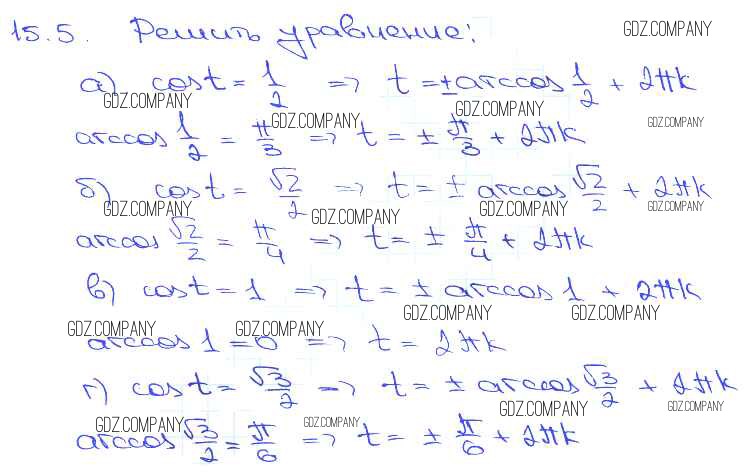 15.5. Решить уравнение: GDZ.COMPANY
а) cost = 1/2 => t = ± arccos 1/2 + 2πk
GDZ.COMPANY GDZ.COMPANY
arccos 1/2 = π/3 => t = ± π/3 + 2πk
GDZ.COMPANY GDZ.COMPANY
б) cost = √2/2 => t = ± arccos √2/2 + 2πk
GDZ.COMPANY GDZ.COMPANY GDZ.COMPANY GDZ.COMPANY
arccos √2/2 = π/4 => t = ± π/4 + 2πk
в) cost = 1 => t = ± arccos 1 + 2πk
GDZ.COMPANY GDZ.COMPANY GDZ.COMPANY GDZ.COMPANY
arccos 1 = 0 => t = 2πk
г) cost = √3/2 => t = ± arccos √3/2 + 2πk
GDZ.COMPANY GDZ.COMPANY GDZ.COMPANY GDZ.COMPANY
arccos √3/2 = π/6 => t = ± π/6 + 2πk